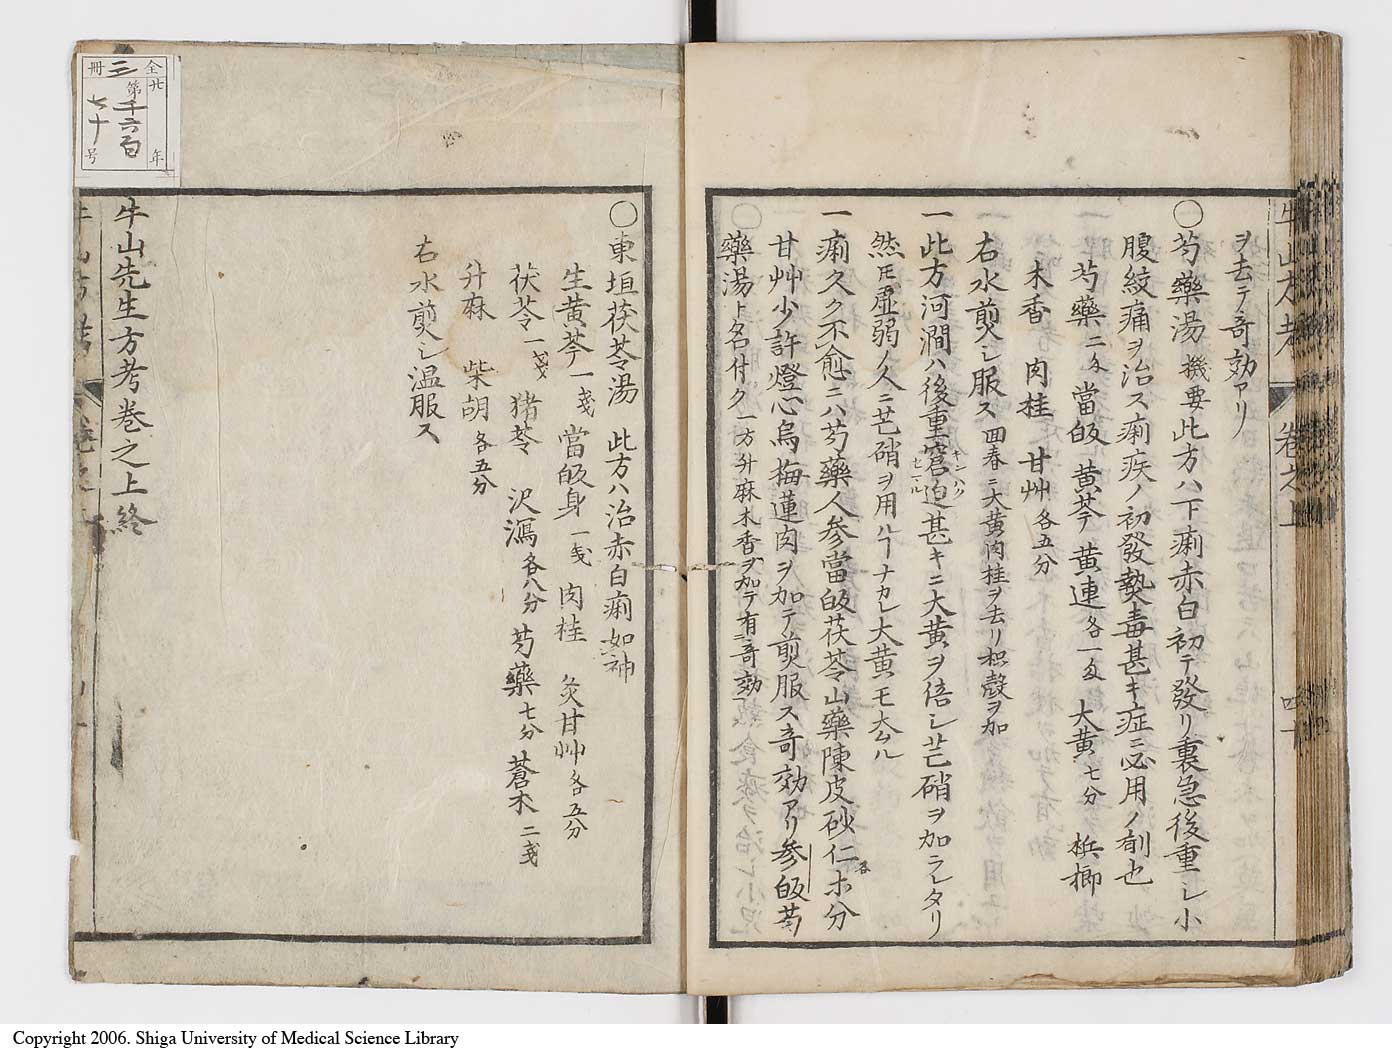 ヲ去テ竒効アリ
〇芍藥湯 機要 此方ハ下痢赤白初テ發リ裏急後重シ小
腹絞痛ヲ治ス痢疾ノ初發熱毒甚キ症ニ必用ノ剤也
芍藥 二匁 當皈 黄芩 黄連 各一匁 大黄 七分 梹榔
木香 肉桂 甘艸 各五分
右水煎シ服ス 回春ニ大黄肉桂ヲ去リ枳殻ヲ加
一此方河澗ハ後重窘迫甚キニ大黄ヲ倍シ芒硝ヲ加ラレタリ
キンハク
セマル
然𪜈虚弱ノ人ニ芒硝ヲ用ルヿナカレ大黄モ大ムル
一痢久ク不愈ニハ芍藥人参當皈茯苓山藥陳皮砂仁各ホ分
甘艸少許燈心烏梅蓮肉ヲ加テ煎服ス竒効アリ参皈芍
藥湯ト名付ク 一方升麻木香ヲ加テ有竒効
牛山方考 卷之上 四十
〇東垣茯苓湯 此方ハ治赤白痢如神
生黄芩 一戔 當皈身 一戔 肉桂 炙甘艸 各五分
茯苓 一戔 猪苓 沢瀉 各八分 芍藥 七分 蒼朮 二戔
升麻 柴胡 各五分
右水煎シ温服ス
牛山先生方考卷之上終
全 三 冊
廿 年
第千六百
七十号
Copyright 2006. Shiga University of Medical Science Library